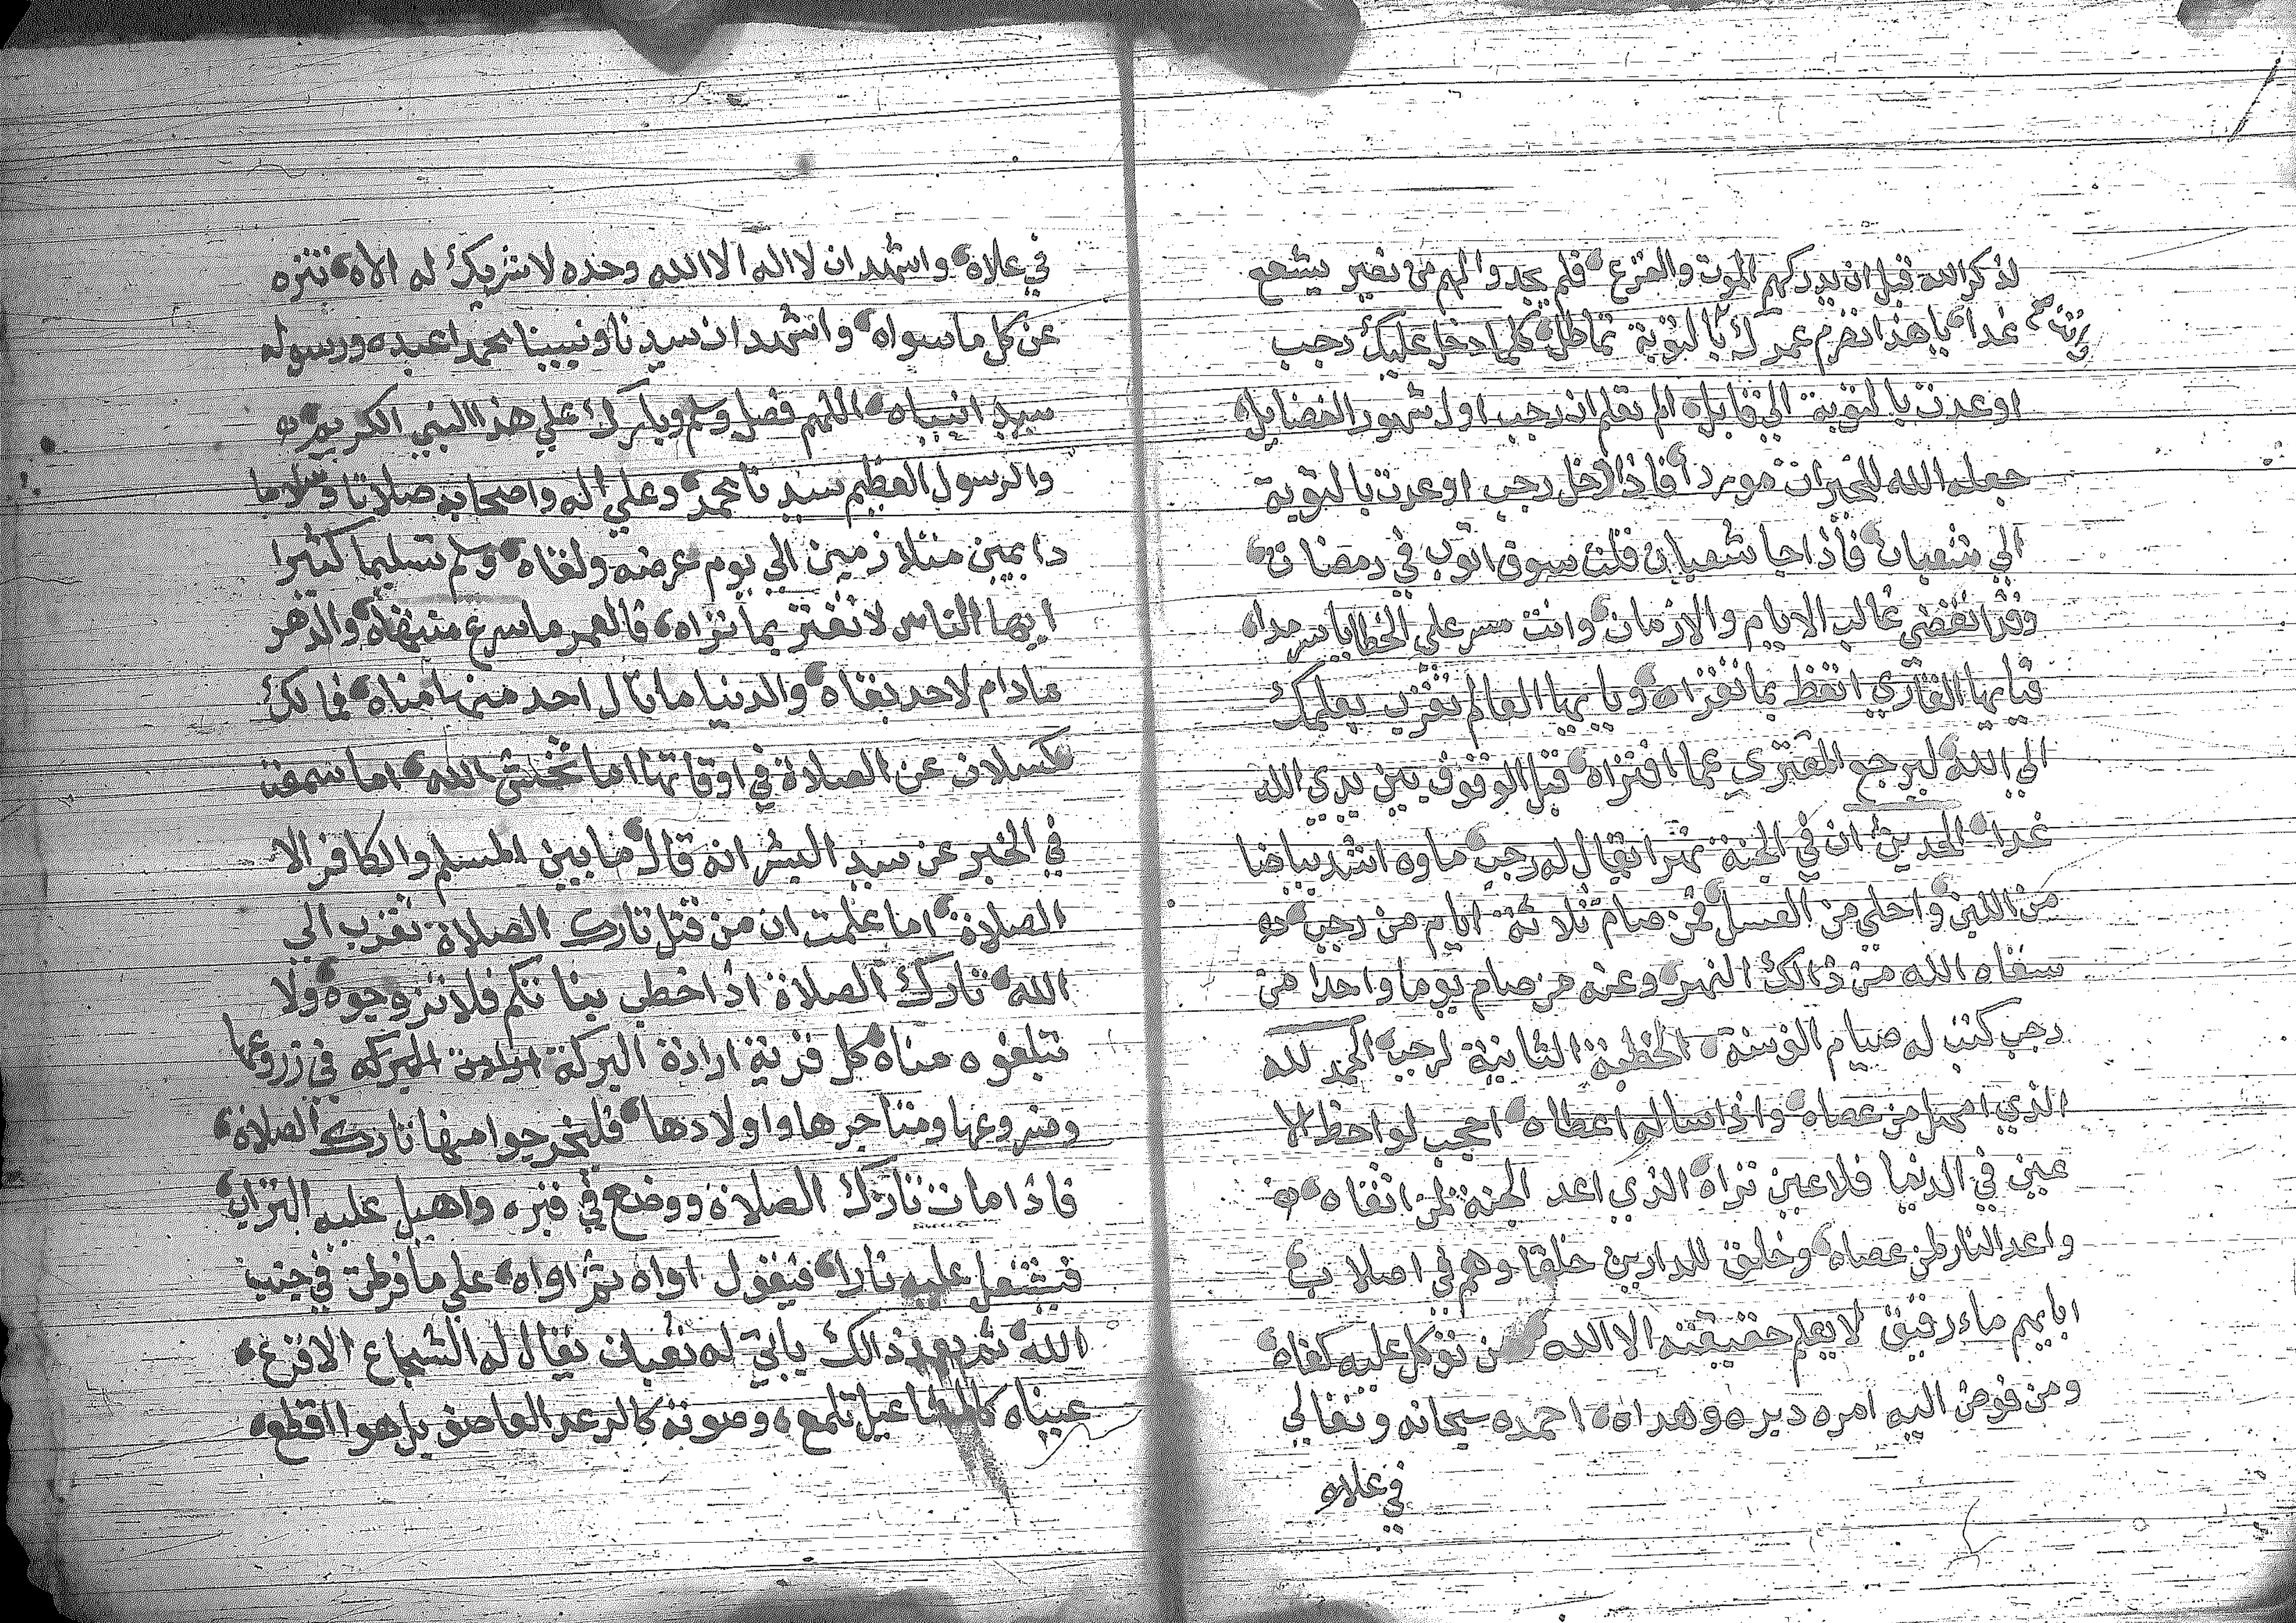 لذكر الله قبل ان يدركهم الموت والفزع فلم يجدوا لهم من نصير يشفع
غدا يا هذا تصرم عمرك بالتوبة تماطل كلما دخل عليك رجب
اوعدت بالتوبة الي قابل الم تعلم ان رجب اول شهور الفضايل
جعله الله للخيرات موردا فاذا دخل رجب اوعدت بالتوبة
الي شعبان فاذا جا شعبان قلت سوف اتوب في رمضان
وقد انقضي غالب الايام والازمان وانت مسر علي الخطايا سرمدا
فيا يها القاري اتعظ بما تقراه ويا يها العالم تقرب بعلمك
الي الله ليرجع المفتري عما افتراه قبل الوقوف بين يدي الله
غدا الحديث ان في الجنة نهرا يقال له رجب ماوه اشد بياضا
من اللبن واحلي من العسل فمن صام ثلاثة ايام من رجب
سقاه الله من ذالك النهر وعنه من صام يوما واحدا من
رجب كتب له صيام الف سنة الخطبة الثانية لرجب الحمد لله
الذي امهل من عصاه واذا ساله اعطاه احجب لواحظ الا
عين في الدنيا فلا عين تراه الذي اعد الجنة لمن اتقاه
واعد النار لمن عصاه وخلق للدارين خلقا وهم في اصلاب
ابايهم ماء رقيق لا يعلم حقيقته الا الله من توكل عليه كفاه
ومن فوض اليه امره دبره وهداه احمده سبحانه وتعالي
في علاه
في علاه واشهد ان لا اله الا الله وحده لا شريك له الاه تنزه
عن كل ما سواه واشهد ان سيدنا ونبينا محمدا عبده ورسوله
سيد انبياه اللهم فصل وسلم وبارك علي هذا النبي الكريم
والرسول العظيم سيدنا محمد وعلي اله واصحابه صلاتا وسلاما
دايمين متلازمين الي يوم عرضه ولقاه وسلم تسليما كثيرا
ايها الناس لا تغتر بما تراه فالعمر ما سرع منتهاه والدهر
مادام لاحد بقاه والدنيا ما نال احد منها مناه فما لك
كسلان عن الصلاة في اوقاتها اما تخش الله اما سمعت
في الخبر عن سيد البشر انه قال ما بين المسلم والكافر الا
الصلاة اما علمت ان من قتل تارك الصلاة تقرب الي
الله تارك الصلاة اذا خطب بناتكم فلا تزوجوه ولا
تبلغوه مناه كل قرية ارادة البركة في زروعها
وضروعها ومتاجرها واولادها فليخرجوا منها تارك الصلاة
فاذا مات تارك الصلاة ووضع في قبره واهيل عليه التراب
فيشتعل عليه نارا فيقول اواه ثم اواه علي ما فرطت في جنب
الله ثم بعد ذالك ياتي له ثعبان يقال له الشجاع الاقرع
عيناه كالمشاعيل تلمع وصوته كالرعد العاصف بل هو اقطع